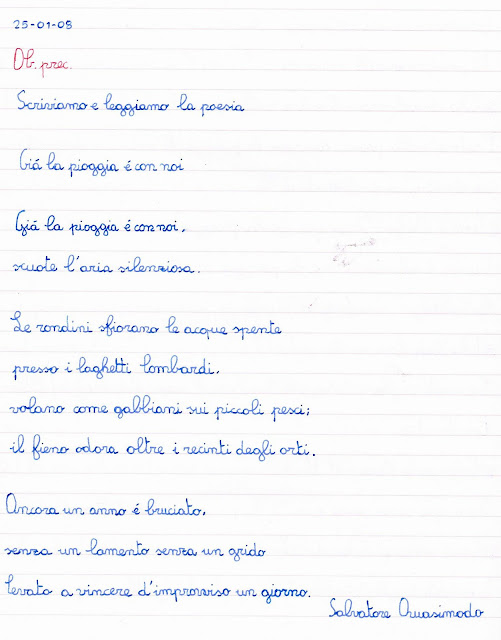 25-01-08
Ob. prec.
Scriviamo e leggiamo la poesia
Giá la pioggia é con noi
Giá la pioggia é con noi,
scuote l'aria silenziosa.
Le rondini sfiorano le acque spente
presso i laghetti lombardi,
volano come gabbiani sui piccoli pesci;
il fieno odora oltre i recinti degli orti.
Ancora un anno é bruciato,
senza un lamento senza un grido
levato a vincere d'improvviso un giorno.
Salvatore Quasimodo